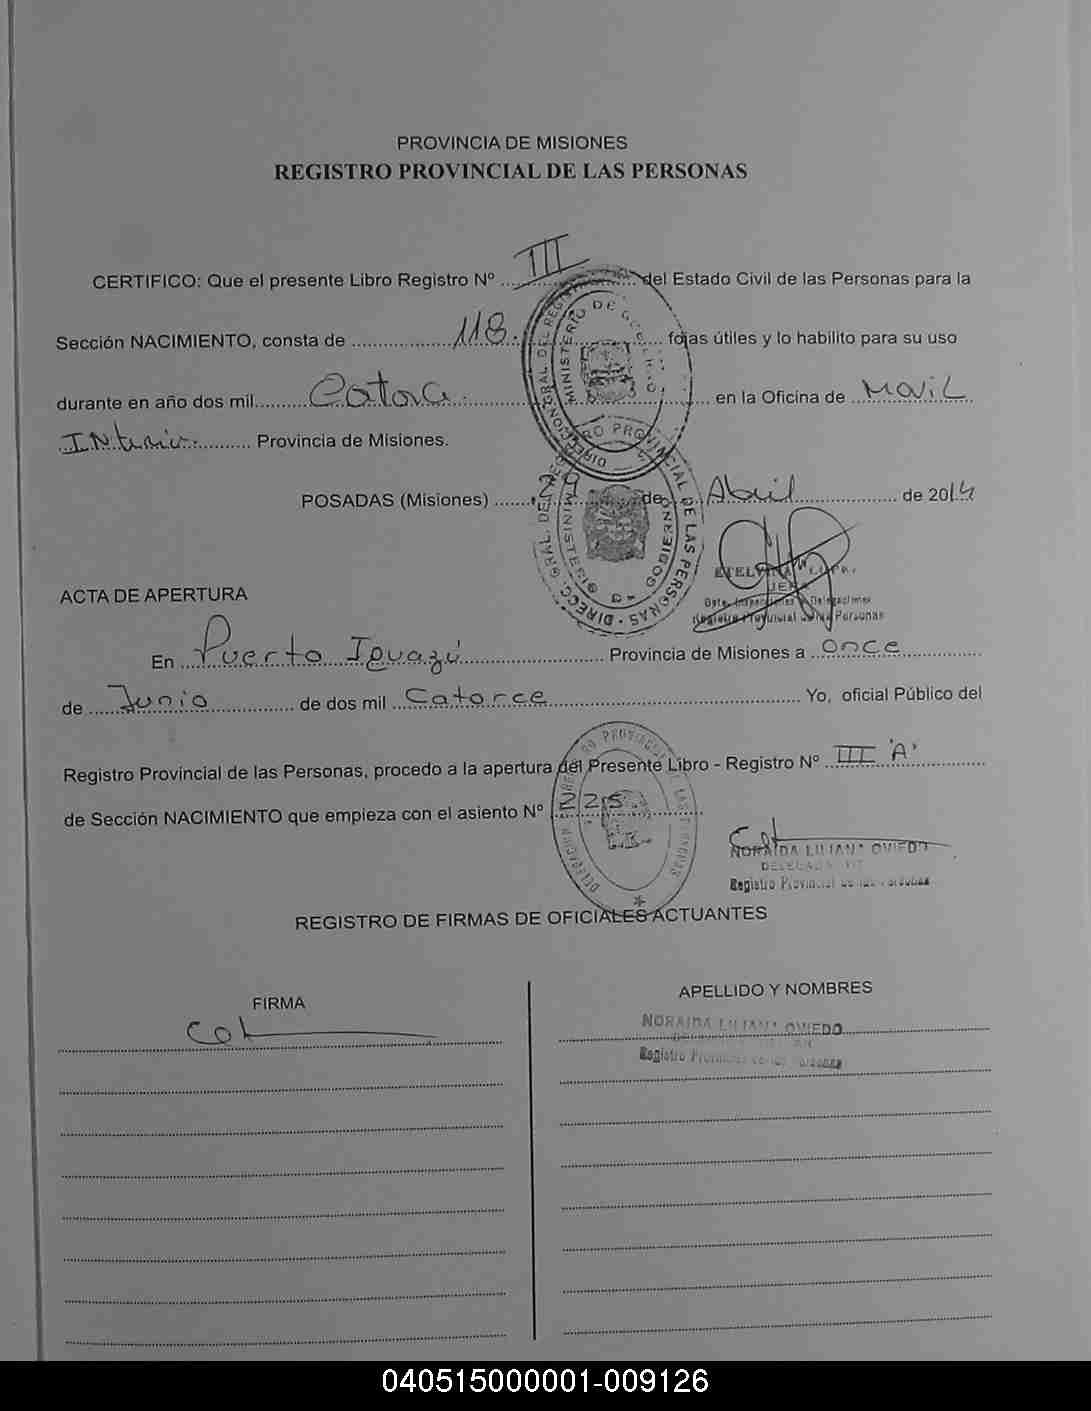 PROVINCIA DE MISIONES
REGISTRO PROVINCIAL DE LAS PERSONAS
CERTIFICO: Que el presente Libro Registro Nº III del Estado Civil de las Personas para la
Sección NACIMIENTO, consta de 118 fojas útiles y lo habilito para su uso
durante en año dos mil Catorce en la Oficina de Movil
Interior Provincia de Misiones.
POSADAS (Misiones) 29 de Abril de 2014
ETELVINA
JEFA
Dpto. Inspecciones Delegaciones
Registro Provincial de las Personas
ACTA DE APERTURA
En Puerto Iguazú Provincia de Misiones a once
de Junio de dos mil Catorce Yo, oficial Público del
Registro Provincial de las Personas, procedo a la apertura del Presente Libro - Registro Nº III "A"
de Sección NACIMIENTO que empieza con el asiento Nº 225
NORAIDA LILIANA OVIEDO
DELEGADA
Registro Provincial de las Personas
REGISTRO DE FIRMAS DE OFICIALES ACTUANTES
FIRMA
APELLIDO Y NOMBRES
NORAIDA LILIANA OVIEDO
Registro Provincial de las Personas
040515000001-009126